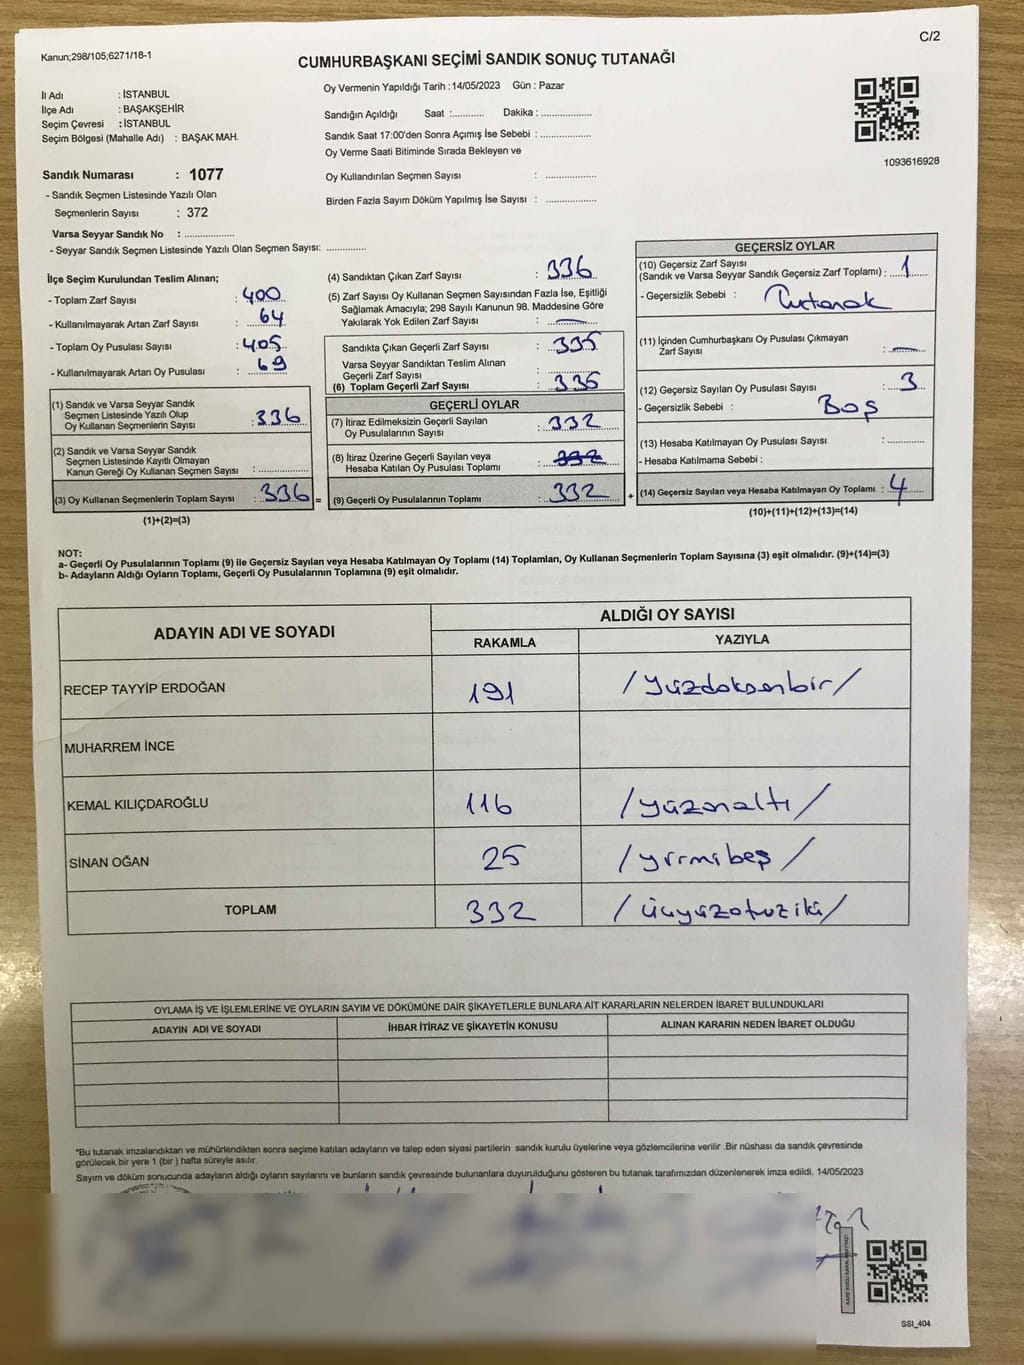 C/2
Kanun;298/105;6271/18-1
CUMHURBAŞKANI SEÇİMİ SANDIK SONUÇ TUTANAĞI
İl Adı : İSTANBUL
İlçe Adı : BAŞAKŞEHİR
Seçim Çevresi : İSTANBUL
Seçim Bölgesi (Mahalle Adı) : BAŞAK MAH.
Oy Vermenin Yapıldığı Tarih : 14/05/2023 Gün : Pazar
Sandığın Açıldığı Saat :.......... Dakika : ...............
Sandık Saat 17:00'den Sonra Açımış İse Sebebi : ...............
Oy Verme Saati Bitiminde Sırada Bekleyen ve
Oy Kullandırılan Seçmen Sayısı : ...............
Birden Fazla Sayım Döküm Yapılmış İse Sayısı : ...............
1093616928
Sandık Numarası : 1077
- Sandık Seçmen Listesinde Yazılı Olan
Seçmenlerin Sayısı : 372
Varsa Seyyar Sandık No : ...............
- Seyyar Sandık Seçmen Listesinde Yazılı Olan Seçmen Sayısı: ............
İlçe Seçim Kurulundan Teslim Alınan;
- Toplam Zarf Sayısı : 400
- Kullanılmayarak Artan Zarf Sayısı : 64
- Toplam Oy Pusulası Sayısı : 405
- Kullanılmayarak Artan Oy Pusulası : 69
(1) Sandık ve Varsa Seyyar Sandık
Seçmen Listesinde Yazılı Olup
Oy Kullanan Seçmenlerin Sayısı : 336
(2) Sandık ve Varsa Seyyar Sandık
Seçmen Listesinde Kayıtlı Olmayan
Kanun Gereği Oy Kullanan Seçmen Sayısı : ............
(3) Oy Kullanan Seçmenlerin Toplam Sayısı : 336 =
(1)+(2)=(3)
(4) Sandıktan Çıkan Zarf Sayısı : 336
(5) Zarf Sayısı Oy Kullanan Seçmen Sayısından Fazla İse, Eşitliği
Sağlamak Amacıyla; 298 Sayılı Kanunun 98. Maddesine Göre
Yakılarak Yok Edilen Zarf Sayısı : —
Sandıkta Çıkan Geçerli Zarf Sayısı : 335
Varsa Seyyar Sandıktan Teslim Alınan
Geçerli Zarf Sayısı : ............
(6) Toplam Geçerli Zarf Sayısı : 335
GEÇERLİ OYLAR
(7) İtiraz Edilmeksizin Geçerli Sayılan
Oy Pusulalarının Sayısı : 332
(8) İtiraz Üzerine Geçerli Sayılan veya
Hesaba Katılan Oy Pusulası Toplamı : 332
(9) Geçerli Oy Pusulalarının Toplamı : 332 +
GEÇERSİZ OYLAR
(10) Geçersiz Zarf Sayısı
(Sandık ve Varsa Seyyar Sandık Geçersiz Zarf Toplamı) : 1
- Geçersizlik Sebebi : Tutanak
(11) İçinden Cumhurbaşkanı Oy Pusulası Çıkmayan
Zarf Sayısı : —
(12) Geçersiz Sayılan Oy Pusulası Sayısı : 3
- Geçersizlik Sebebi : Boş
(13) Hesaba Katılmayan Oy Pusulası Sayısı : ............
- Hesaba Katılmama Sebebi :
(14) Geçersiz Sayılan veya Hesaba Katılmayan Oy Toplamı : 4
(10)+(11)+(12)+(13)=(14)
NOT:
a- Geçerli Oy Pusulalarının Toplamı (9) ile Geçersiz Sayılan veya Hesaba Katılmayan Oy Toplamı (14) Toplamları, Oy Kullanan Seçmenlerin Toplam Sayısına (3) eşit olmalıdır. (9)+(14)=(3)
b- Adayların Aldığı Oyların Toplamı, Geçerli Oy Pusulalarının Toplamına (9) eşit olmalıdır.
ADAYIN ADI VE SOYADI
ALDIĞI OY SAYISI
RAKAMLA YAZIYLA
RECEP TAYYİP ERDOĞAN 191 /Yüzdoksanbir/
MUHARREM İNCE
KEMAL KILIÇDAROĞLU 116 /yüzonaltı/
SİNAN OĞAN 25 /yirmibeş/
TOPLAM 332 /üçyüzotuziki/
OYLAMA İŞ VE İŞLEMLERİNE VE OYLARIN SAYIM VE DÖKÜMÜNE DAİR ŞİKAYETLERLE BUNLARA AİT KARARLARIN NELERDEN İBARET BULUNDUKLARI
ADAYIN ADI VE SOYADI İHBAR İTİRAZ VE ŞİKAYETİN KONUSU ALINAN KARARIN NEDEN İBARET OLDUĞU
*Bu tutanak imzalandıktan ve mühürlendikten sonra seçime katılan adayların ve talep eden siyasi partilerin sandık kurulu üyelerine veya gözlemcilerine verilir .Bir nüshası da sandık çevresinde
görülecek bir yere 1 (bir ) hafta süreyle asılır.
Sayım ve döküm sonucunda adayların aldığı oyların sayılarını ve bunların sandık çevresinde bulunanlara duyurulduğunu gösteren bu tutanak tarafımızdan düzenlenerek imza edildi. 14/05/2023
SSI_404